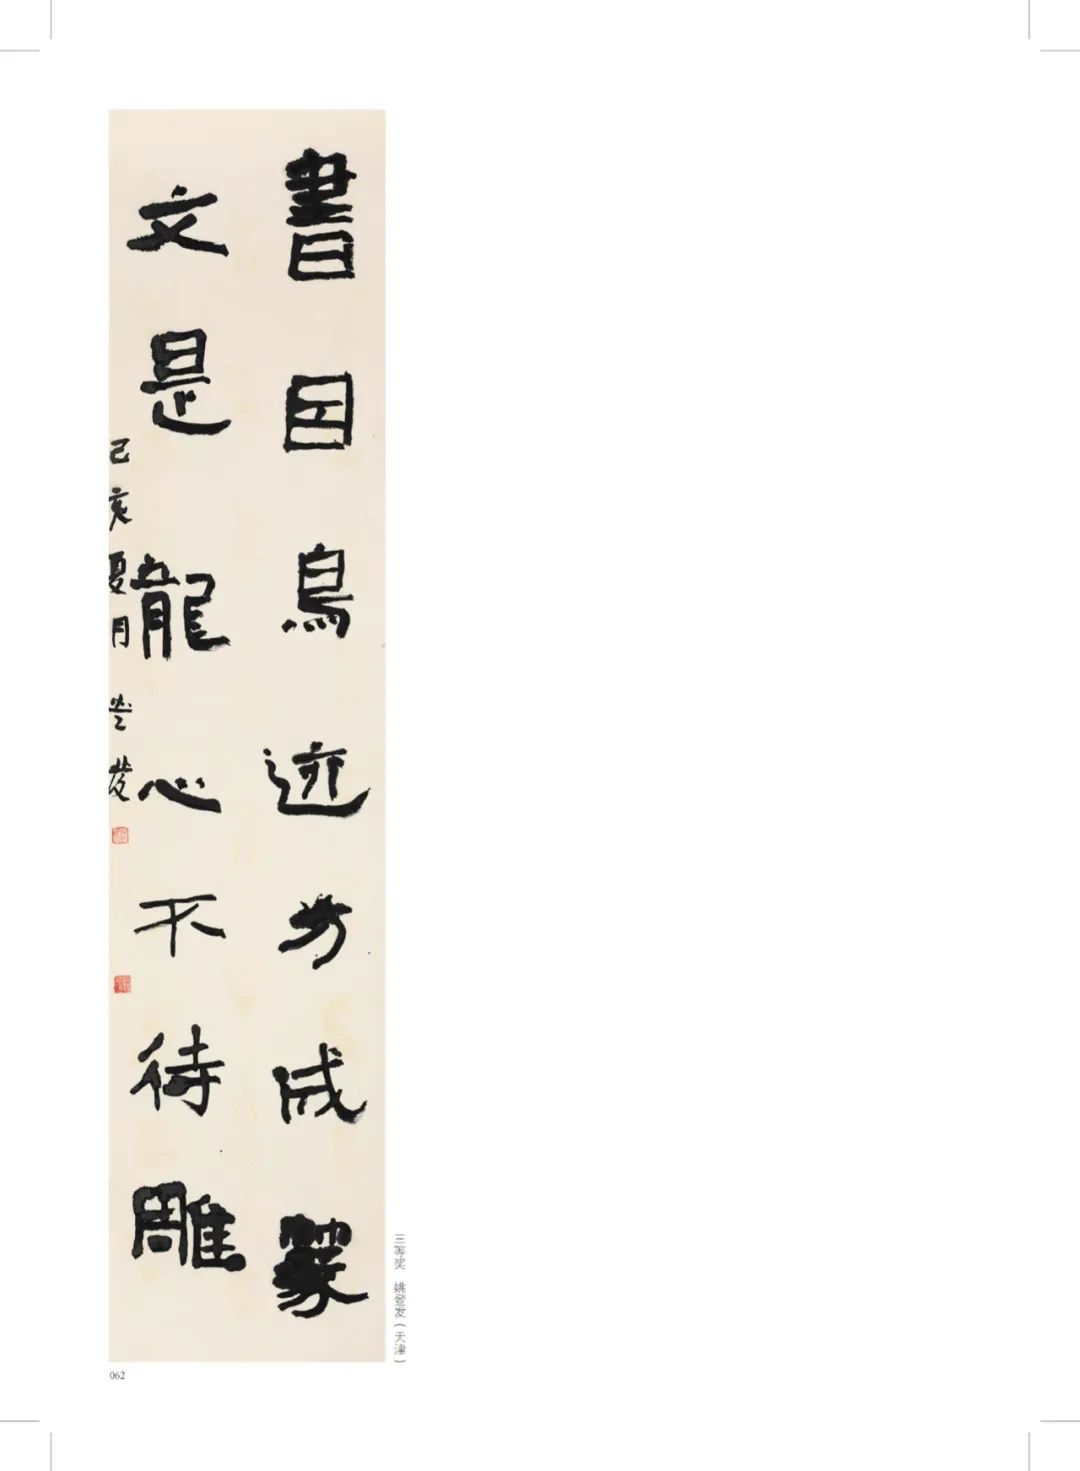 書囙鳥迹方成篆
文是龍心不待雕
己亥夏月 登發
三等奖 姚登发（天津）
062